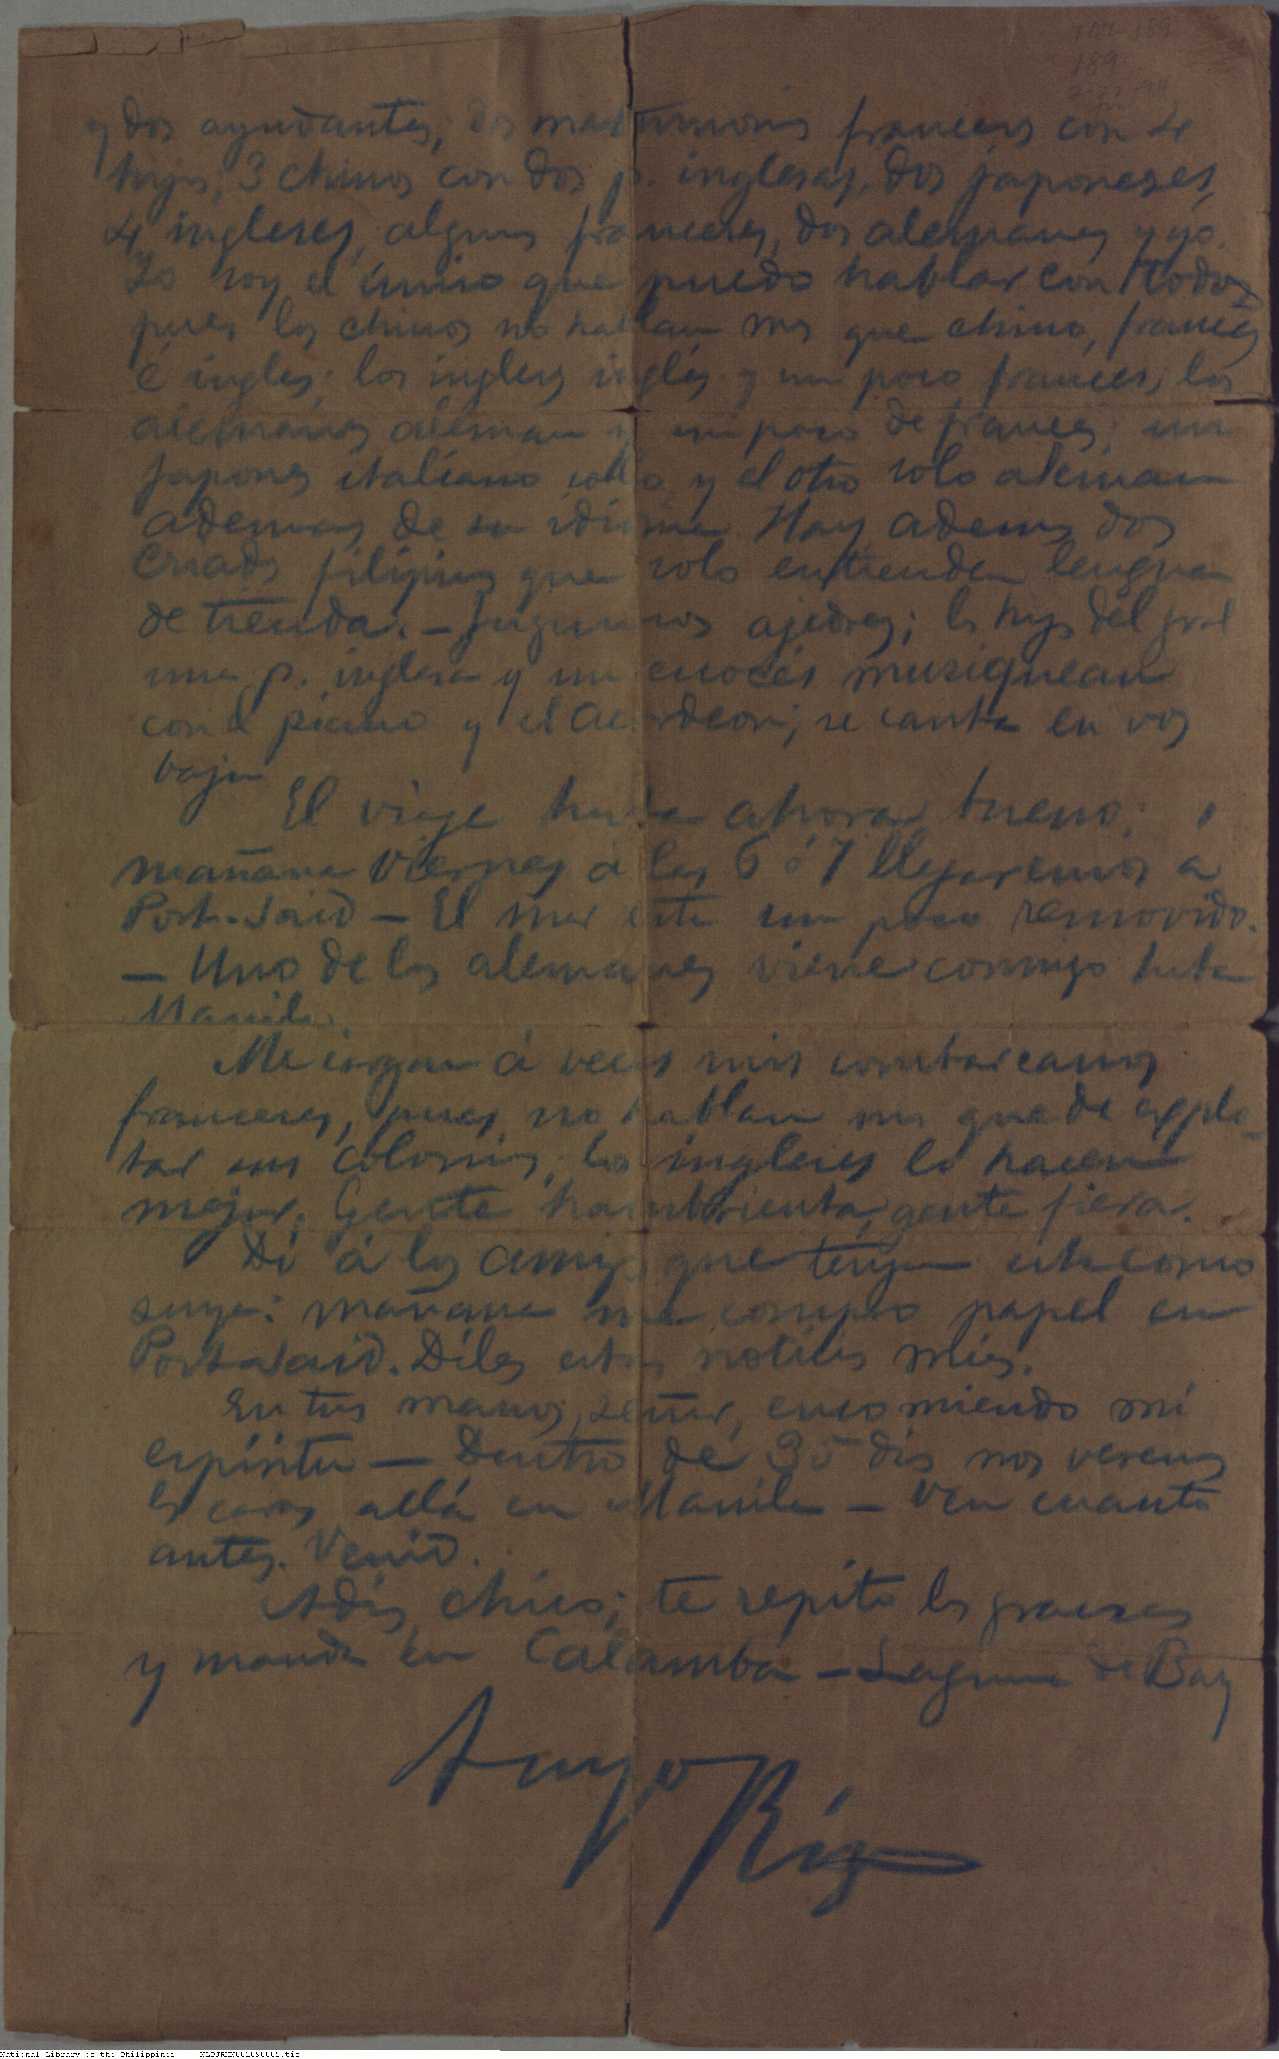 189
y dos ayudantes, dos matrimonios franceses con 4
hijos, 3 chinos con dos p. inglesas, dos japoneses,
4 ingleses, algunos franceses, dos alemanes y yo.
Yo soy el único que puedo hablar con todos
pues los chinos no hablan mas que chino, francés
é inglés; los ingleses inglés y un poco francés; los
alemanes aleman y un poco de francés; un
japones italiano solo, y el otro solo aleman
ademas de su idioma. Hay ademas dos
criados filipinos que solo entienden lengua
de tienda. — Jugamos ajedrez; los hijos del gral
una p. inglesa y un escocés musiquean
con el piano y el acordeon; se canta en vos
baja
El viaje hasta ahora bueno;
mañana viernes á las 6 ó 7 llegaremos a
Port-Said — El mar está un poco removido.
— Uno de los alemanes viene conmigo hasta
Manila.
Me cargan á veces mis combarcanos
franceses, pues no hablan mas que de explo-
tar sus colonias; los ingleses lo hacen
mejor. Gente hambrienta, gente fiera.
Dí á los amigos que tengan esta como
suya: mañana me compro papel en
Port-Said. Díles estas noticias mías.
En tus manos, señor, encomiendo mi
espíritu — Dentro de 35 días nos veremos
las caras allá en Manila — Ven cuanto
antes. Venid.
Adiós chico; te repito las gracias
y manda en Calamba — Laguna de Bay
Tuyo
Rizal
National Library of the Philippines